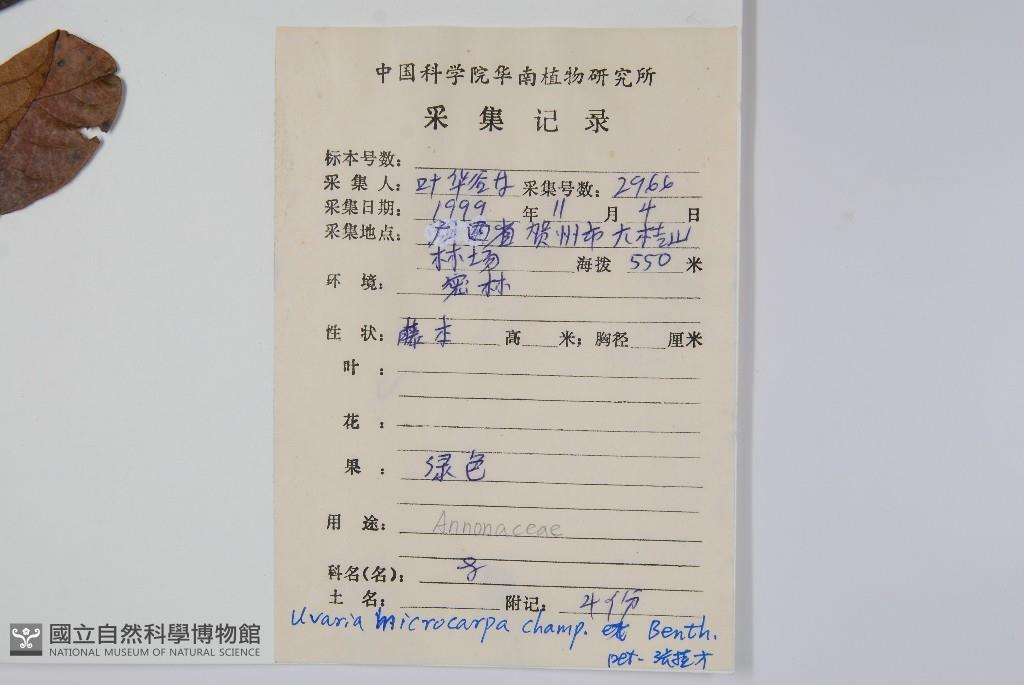 中国科学院华南植物研究所
采集记录
标本号数：
采集人：叶华谷 采集号数：2966
采集日期：1999年11月4日
采集地点：广西省贺州市大桂山
林场 海拨550米
环境：密林
性状：藤本 高 米；胸径 厘米
叶：
花：
果：绿色
用途：Annonaceae
科名(名)：
土名： 附记：4份
Uvaria microcarpa champ. ex Benth.
Det.
國立自然科學博物館
NATIONAL MUSEUM OF NATURAL SCIENCE